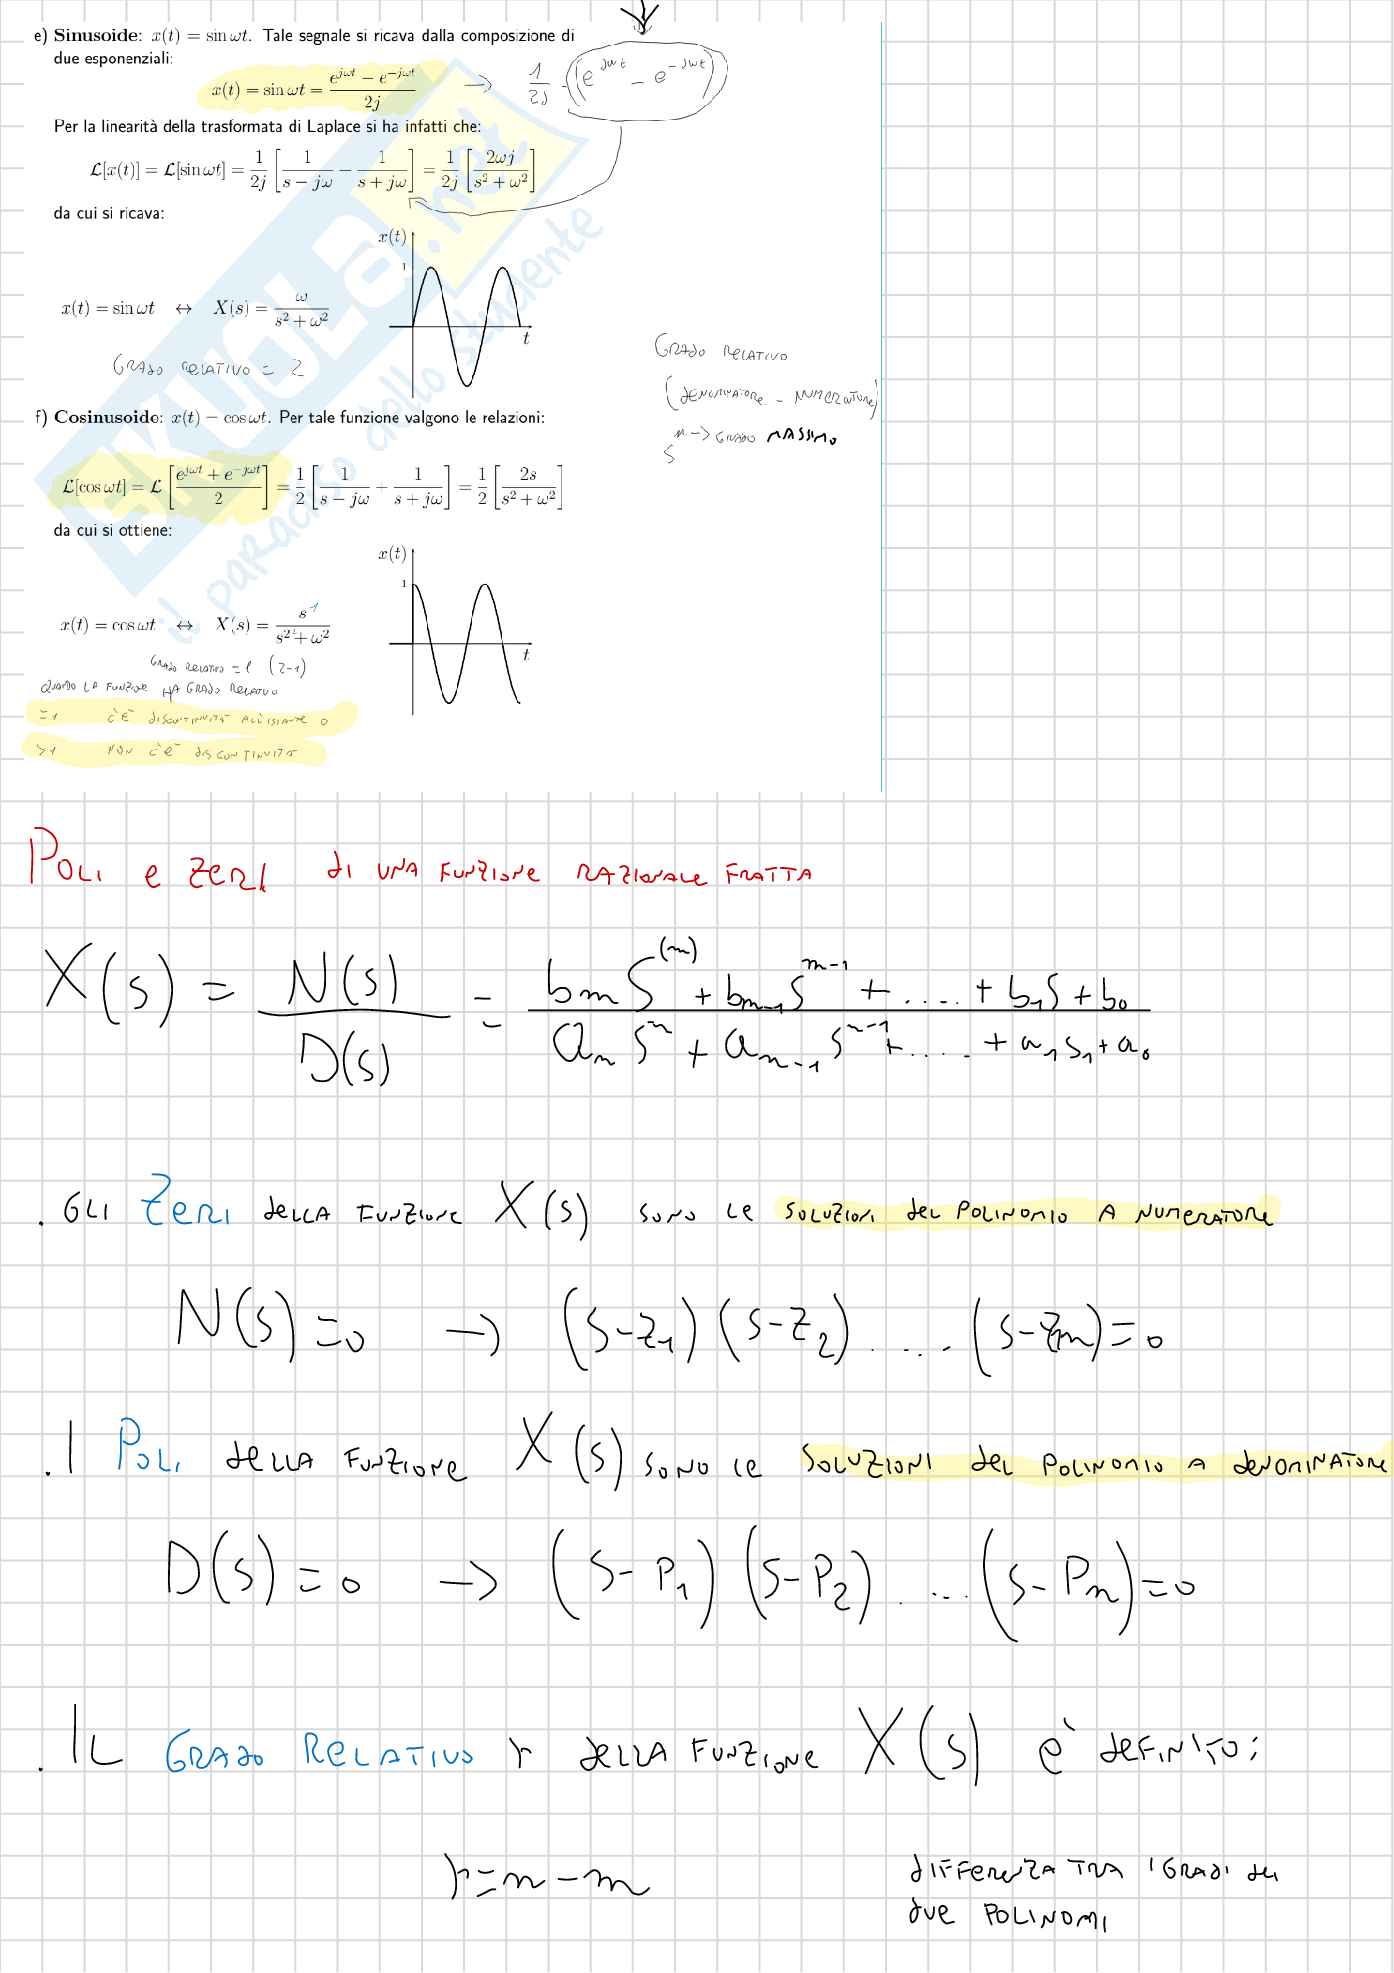 e) Sinusoide: x(t) = sin ωt. Tale segnale si ricava dalla composizione di
due esponenziali:
x(t) = sin ωt = (e^{jωt} − e^{−jωt}) / 2j → 1/2J · (e^{jωt} − e^{−jωt})
Per la linearità della trasformata di Laplace si ha infatti che:
𝓛[x(t)] = 𝓛[sin ωt] = 1/2j [1/(s − jω) − 1/(s + jω)] = 1/2j [2ωj/(s² + ω²)]
da cui si ricava:
x(t)
1
x(t) = sin ωt ↔ X(s) = ω/(s² + ω²)
t
GRADO RELATIVO = 2
GRADO RELATIVO
(DENOMINATORE - NUMERATORE)
s^n -> GRADO MASSIMO
f) Cosinusoide: x(t) − cos ωt. Per tale funzione valgono le relazioni:
𝓛[cos ωt] = 𝓛 [(e^{jωt} + e^{−jωt})/2] = 1/2 [1/(s − jω) + 1/(s + jω)] = 1/2 [2s/(s² + ω²)]
da cui si ottiene:
x(t)
1
x(t) = cos ωt ↔ X(s) = s^1/(s² + ω²)
t
GRADO RELATIVO = 1 (2-1)
QUANDO LA FUNZIONE HA GRADO RELATIVO
=1 C'È DISCONTINUITÀ ALL'ISTANTE 0
>1 NON C'È DISCONTINUITÀ
SKUOLA.net
il paradiso dello studente
POLI e ZERI DI UNA FUNZIONE RAZIONALE FRATTA
X(s) = N(s)/D(s) = (b_m s^(m) + b_{m-1} s^{m-1} + .... + b_1 s + b_0) / (a_n s^n + a_{n-1} s^{n-1} + .... + a_1 s_1 + a_0)
. GLI ZERI DELLA FUNZIONE X(s) SONO LE SOLUZIONI DEL POLINOMIO A NUMERATORE
N(s) = 0 → (s-z_1) (s-z_2) ..... (s-z_m) = 0
. I POLI DELLA FUNZIONE X(s) SONO LE SOLUZIONI DEL POLINOMIO A DENOMINATORE
D(s) = 0 → (s-P_1) (s-P_2) .... (s-P_n) = 0
. IL GRADO RELATIVO r DELLA FUNZIONE X(s) È DEFINITO:
r = n - m
DIFFERENZA TRA I GRADI DEI
DUE POLINOMI